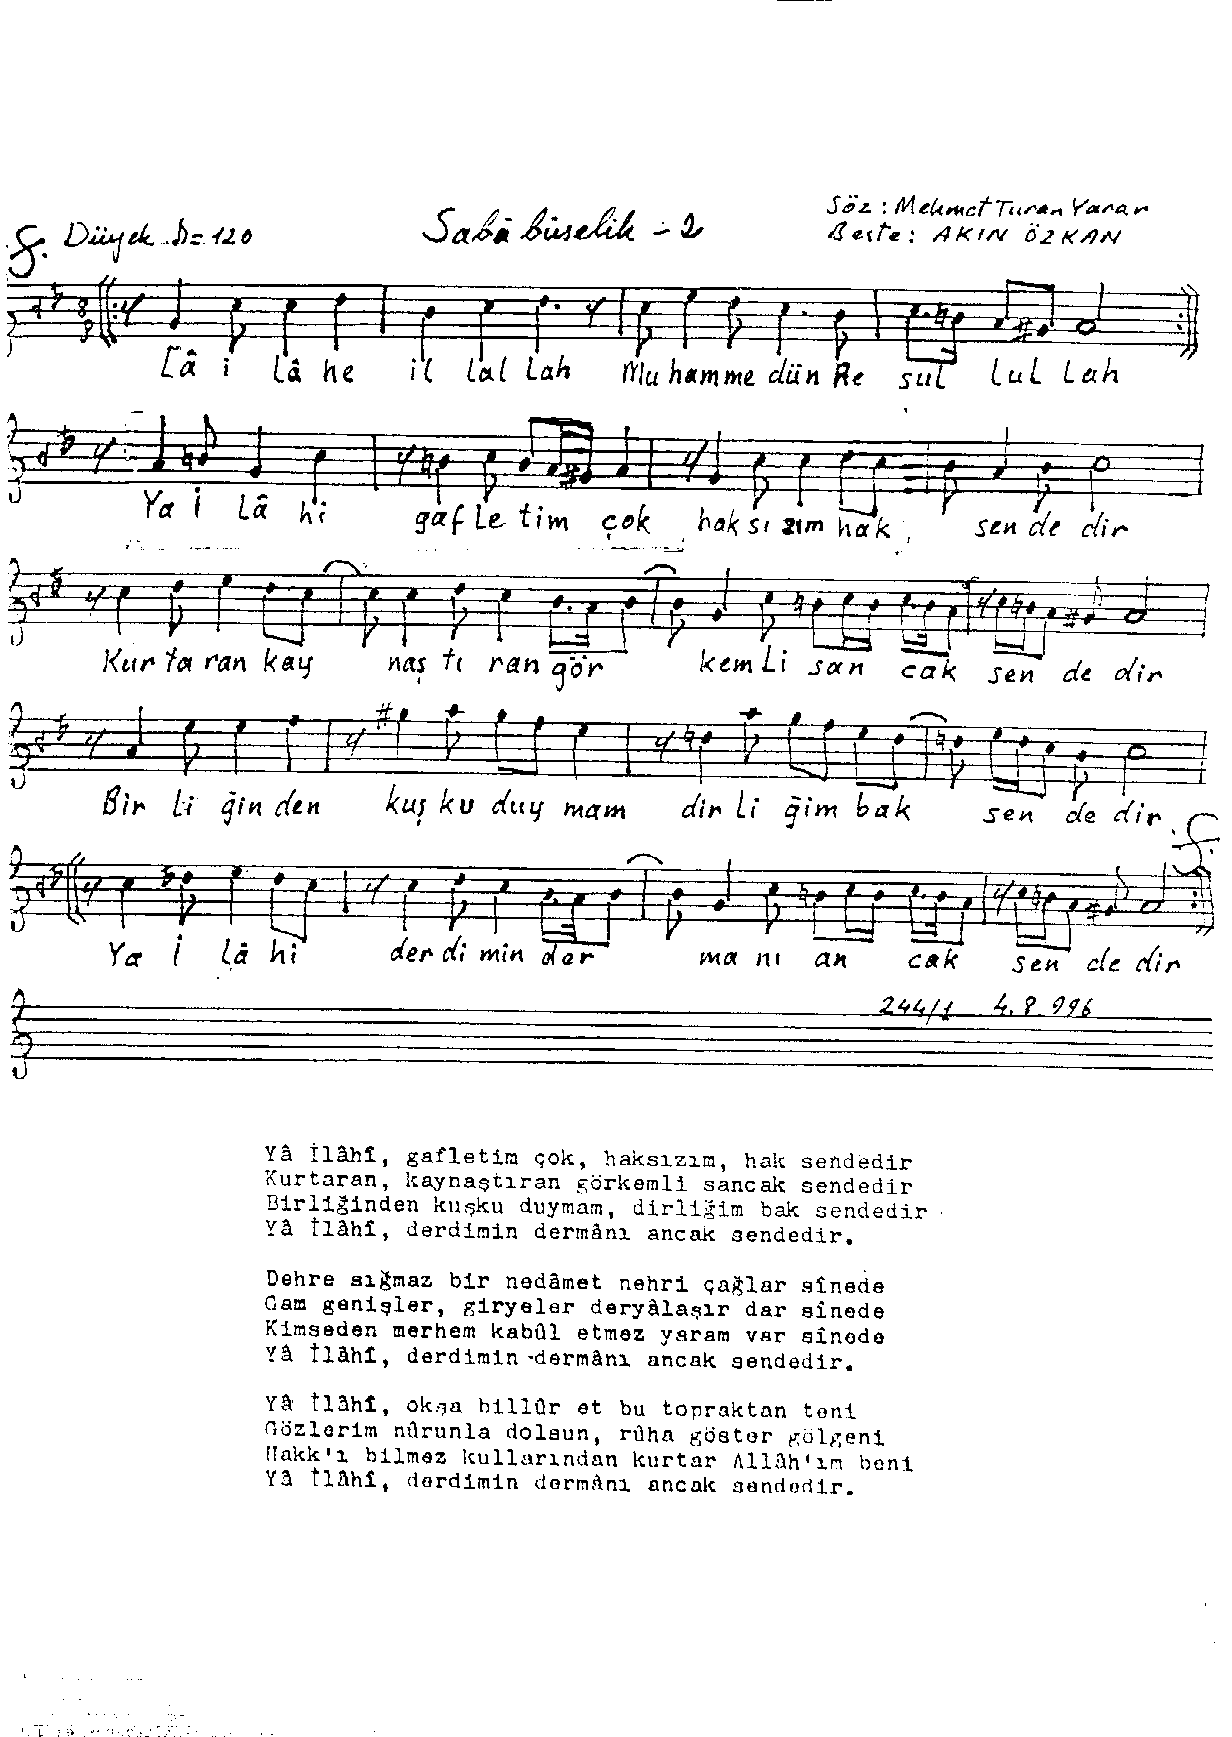 Söz : Mehmet Turan Yarar
Düyek ♪= 120 Sabâ bûselik - 2 Beste : AKIN ÖZKAN
8
8
Lâ i lâ he il lal lah Mu hamme dün Re sul lul lah
Ya İ lâ hi gaf le tim çok hak sı zım hak sen de dir
Kur ta ran kay naş tı ran gör kem li san cak sen de dir
Bir li ğin den kuş ku duy mam dir li ğim bak sen de dir
Ya İ lâ hi der di min der ma nı an cak sen de dir
244/1 4.8.996
Yâ İlâhî, gafletim çok, haksızım, hak sendedir
Kurtaran, kaynaştıran görkemli sancak sendedir
Birliğinden kuşku duymam, dirliğim bak sendedir
Yâ İlâhî, derdimin dermânı ancak sendedir.
Dehre sığmaz bir nedâmet nehri çağlar sînede
Gam genişler, giryeler deryâlaşır dar sînede
Kimseden merhem kabûl etmez yaram var sînede
Yâ İlâhî, derdimin dermânı ancak sendedir.
Yâ İlâhî, okşa billûr et bu topraktan teni
Gözlerim nûrunla dolsun, rûha göster gölgeni
Hakk'ı bilmez kullarından kurtar Allâh'ım beni
Yâ İlâhî, derdimin dermânı ancak sendedir.